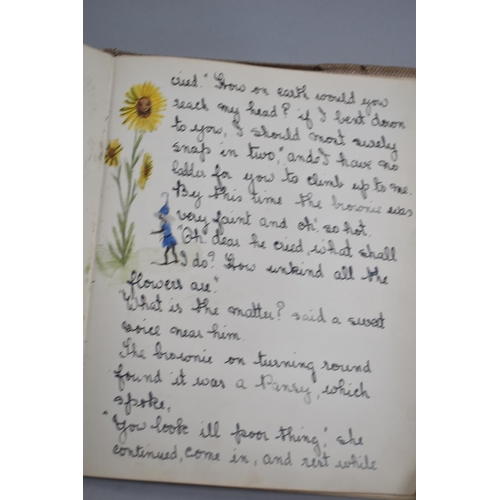 cried." How on earth would you
reach my head? if I bent down
to you, I should most surely
snap in two," and I have no
ladder for you to climb up to me.
By this time the brownie was
very faint and oh! so hot.
"Oh dear he cried, what shall
I do? How unkind all the
flowers are."
"What is the matter? said a sweet
voice near him.
The brownie on turning round
found it was a Pansy, which
spoke,
"You look ill poor thing," she
continued, come in, and rest while